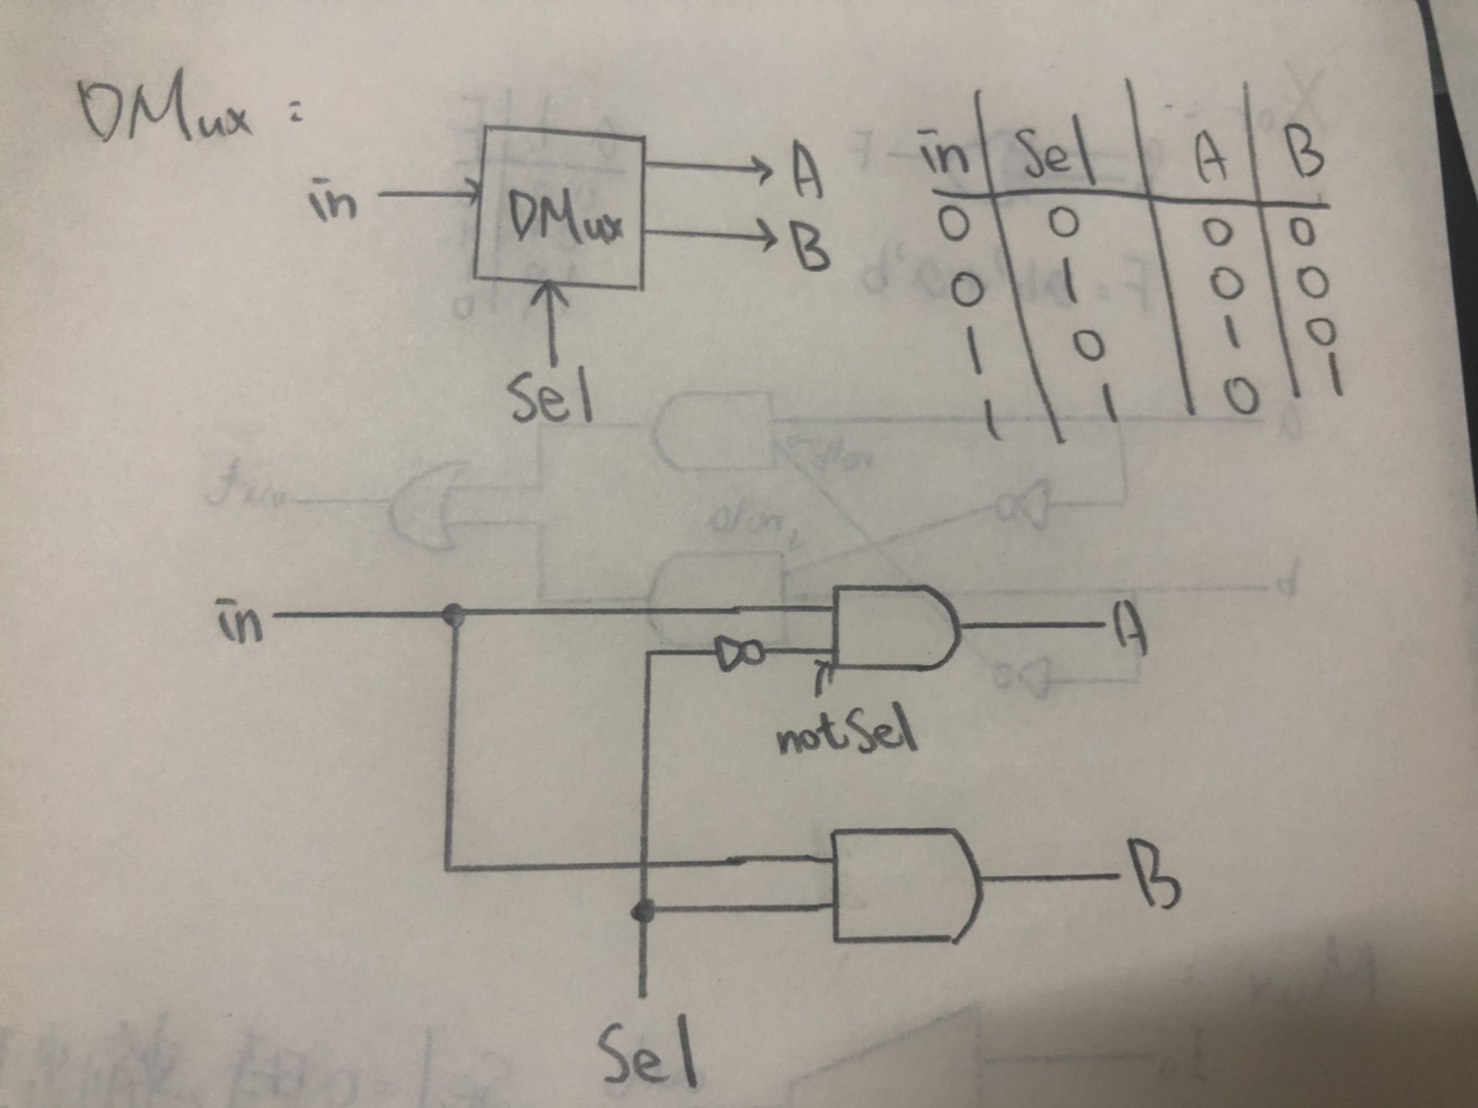 DMux :
in
DMux
A
B
Sel
in Sel A B
0 0 0 0
0 1 0 0
1 0 1 0
1 1 0 1
in
A
notSel
B
Sel